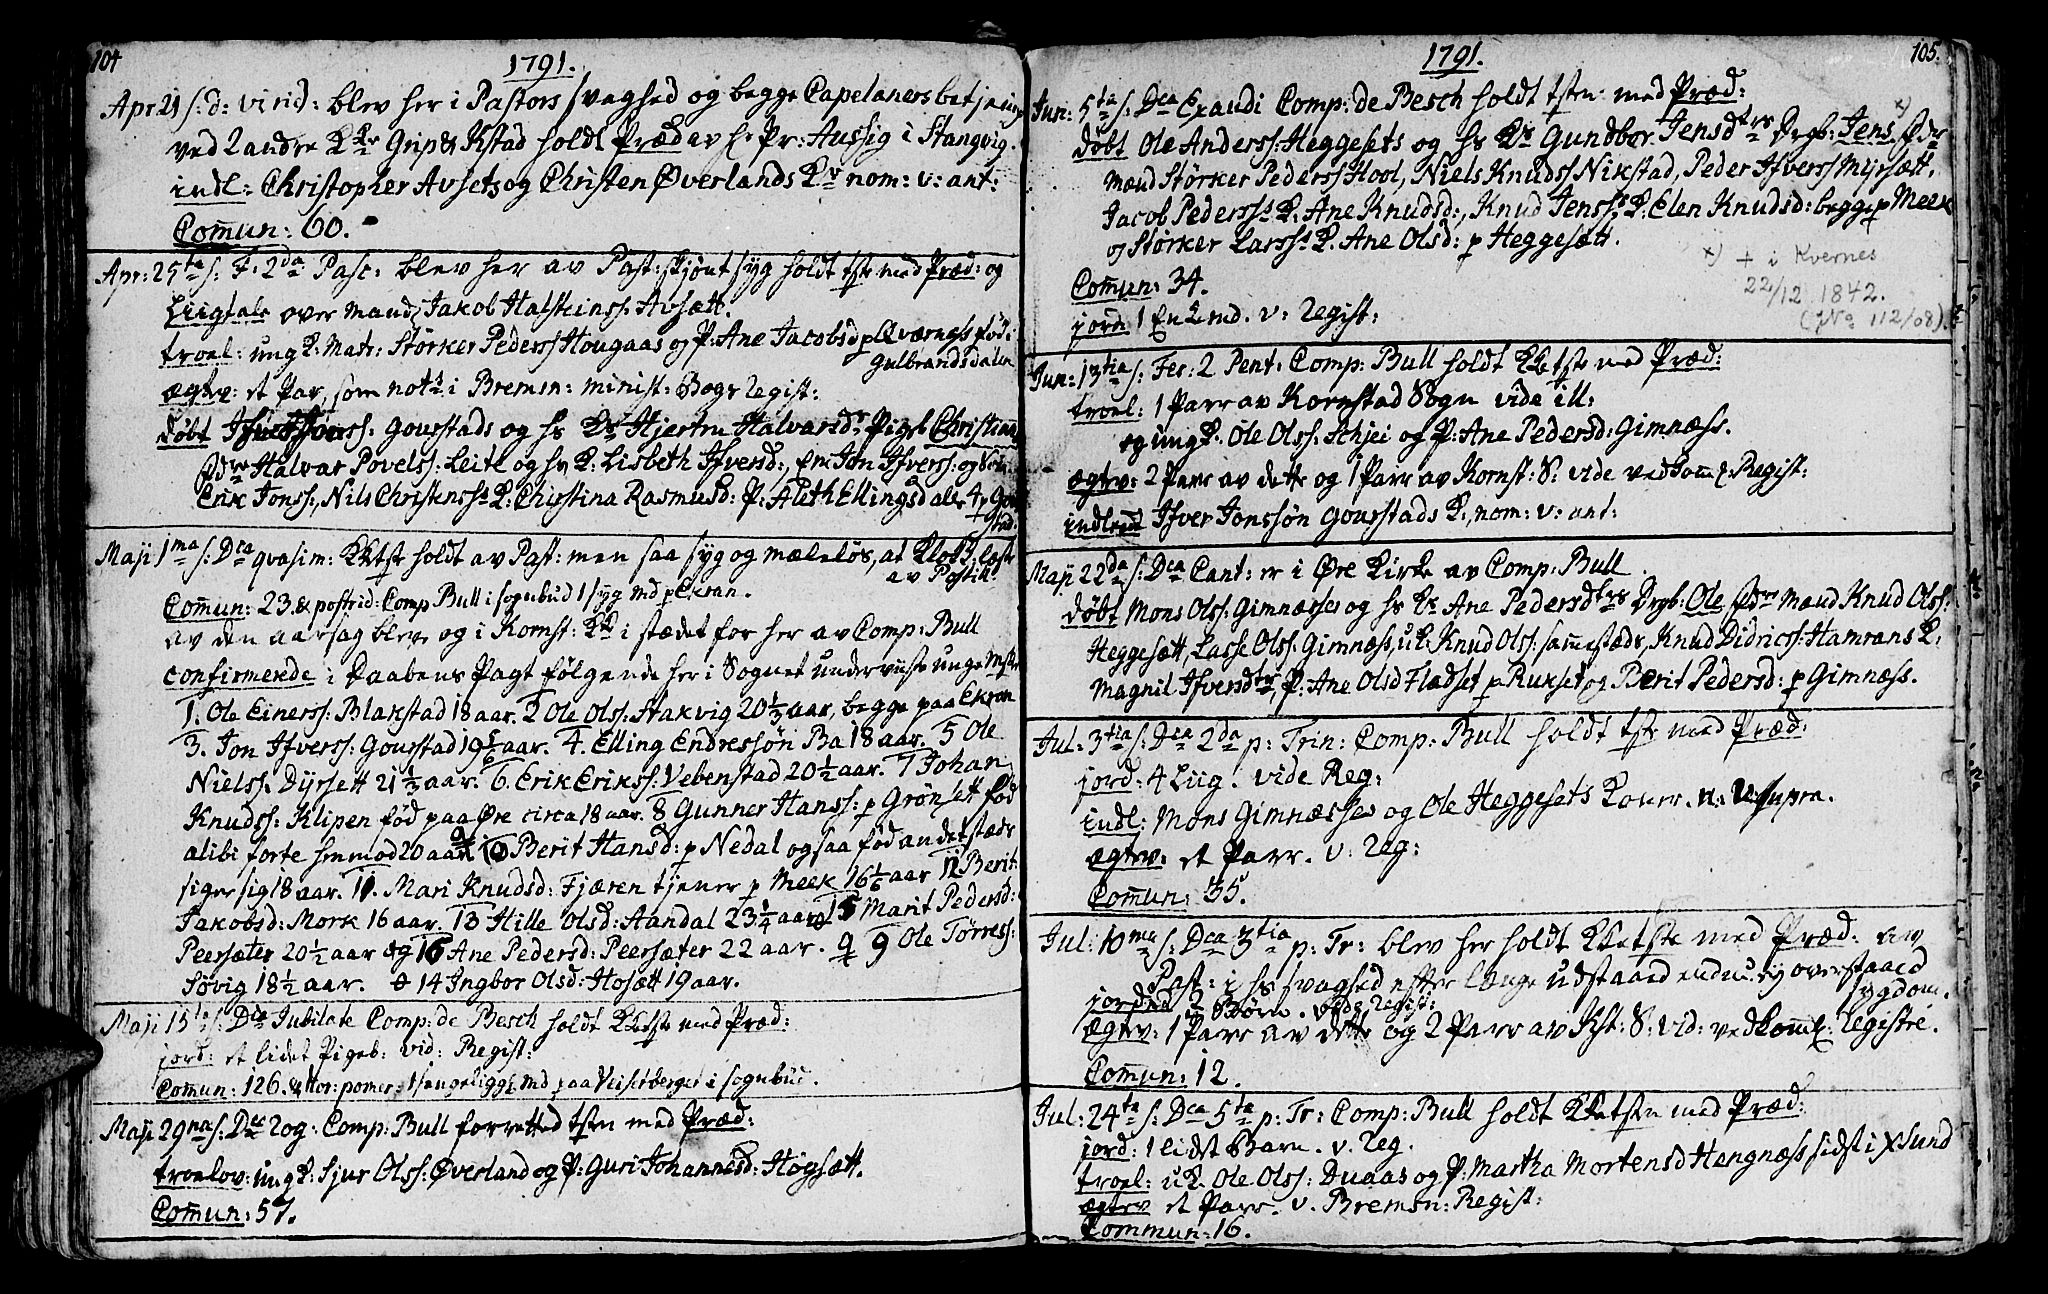 104
1791.
Apr: 21 s: d: virid: blev her i Pastors svaghed og begge Capelaners betjening
ved 2 andre KKr Grip & Kstad holdt Præd av hr Pr: Aussig i Stangvig.
indl: Christopher Avsets og Christen Øverlands Kr nom: v: ant:
Comun: 60.
Apr: 25ta s: F: 2da Pasc: blev her av Past: skjönt syg holdt tste med Præd: og
Liigtale over Mand Jakob Halsteinss: Avsætt.
troel: ung K: Matr: Størker Pederss Hougaas og P: Ane Jacobsd p Qværness föd i
Gulbrandsdalen
ægtv: et Par, som nots i Bremsn: minist: Bogs Regist:
döbt Gourstads og hs Kr Hjertru Halvarsdr Pigeb Christiana
fdre Halvar Povelss: Leite og hs K: Lisbeth Ifversd:, Em Jon Ifverss: og
Erik Jonss:, Nils Christenss K: Christina Rasmusd: P: Aleth Ellingsd ale 4 p Gour
stad:
Maji 1ma s: Dca qvasim: KKtste holdt av Past: men saa syg og mæleløs, at Klokk læste
av Postill.
Comun: 23. & postrid: Comp Bull i sognbud 1 syg md p Ekran.
av den aarsag blev og i Kornst: KK i stædet for her av Comp: Bull
confirmerede i Daabens Pagt følgende her i Sognet underviste unge Mskr
1. Ole Einerss: Blakstad 18 aar. 2 Ole Olss: Stakvig 20 1/3 aar, begge paa Ekran
3. Jon Ifverss: Gourstad 19 5/6 aar. 4. Elling Endressøn Ba 18 aar. 5 Ole
Nielss: Dÿrsett 21 1/3 aar. 6. Erik Erikss: Vebenstad 20 1/2 aar. 7 Johan
Knudss: Klipen föd paa Øre circa 18 aar. 8 Gunner Hanss: p Grönsett föd
alibi forte henmod 20 aar 10 Berit Hansd: p Nedal ogsaa föd andetstæds
siger sig 18 aar. 11. Mari Knudsd: Fjæren tjener p Meek 16 1/6 aar 12 Berit
Jakobsd: Mork 16 aar. 13 Hille Olsd: Aandal 23 1/4 aar 15 Marit Pedersd:
Peersæter 20 1/2 aar og 16 Ane Pedersd: Peersæter 22 aar. 9 Ole Törress:
Sövig 18 1/2 aar. 14 Ingbor Olsd: Hosætt 19 aar.
Maji 15ta s: Dca Jubilate Comp: de Besch holdt KKetste med Præd:
jord: et lidet Pigeb: vid: Regist:
Comun: 126. & hor: pomer: 1 sengeligge md paa Veiserberget i sognbud.
Maji 29na s: Dca Rog: Comp: Bull forretted tsten med Præd:
troelov: ung K: Sjur Olss: Øverland og P: Guri Johannesd: Högsætt.
Comun: 57.
105.
1791.
Jun: 5ta s: Dca Exaudi Comp: de Besch holdt tsten med Præd:
döbt Ole Anderss: Heggesets og hs Kr Gundbor Jensdtrs Drgb: Jens x) fdre
Mænd Størker Pederss Hool, Niels Knudss Nikstad, Peder Ifverss Mÿrsætt,
Jacob Pederss K: Ane Knudsd:, Knud Jenss K: Elen Knudsd: begge p Meek
og Størker Larss K: Ane Olsd: p Heggesætt.
x) + i Kvernes
22/12 1842.
(No 112/08).
Comun: 34.
jord: 1 Enkemd. v: Regist:
Jun: 13tia s: Fer: 2 Pent: Comp: Bull holdt KKetste med Præd:
troel: 1 Parr av Kornstad Sogn vide ill:
og ung K: Ole Olss: Schjei og P: Ane Pedersd: Gimnæss.
ægtv: 2 Parr av dette og 1 Parr av Kornst: S: vide vedkom: Regist:
indleed Ifver Jonssön Gourstads K:, nom: v: ant:
Maji 22da s: Dca Cant: er i Øre Kirke av Comp: Bull
döbt Mons Olss: Gimnæsses og hs Kr Ane Pedersdtrs Drgb: Ole fdre Mænd Knud Olss:
Heggesætt, Lasse Olss: Gimnæss, u K: Knud Olss: sammestæds, Knud Didricss: Hamrans K:
Magnil Ifversdtr, P: Ane Olsd Flædset p Rukset og Berit Pedersd: p Gimnæss.
Jul: 3tia s: Dca 2da p: Trin: Comp: Bull holdt tste med Præd:
jord: 4 Liig. vide Reg:
indl: Mons Gimnæsses og Ole Heggesets Koner. n: v: supra.
ægtv: et Parr. v: Reg:
Comun: 35.
Jul: 10ma s: Dca 3tia p: Tr: blev her holdt KKetste med Præd: av
Past: i hs svaghed efter længe udstaaed endnu ej overstaaed
sygdom.
jorded 2 Börn. vide Regist:
ægtv: 1 Parr av dette og 2 Parr av Kst: S: vid: vedkom: Registre.
Comun: 12.
Jul: 24ta s: Dca 5ta p: Tr: Comp: Bull holdt KKetsten med Præd:
jord: 1 lidet Barn. v. Reg.
troel: u K. Ole Olss: Duaas og P: Martha Mortensd Hengnæss sidst i XSund
ægtv et Parr. v. Bremsn: Regist:
Commun: 16.